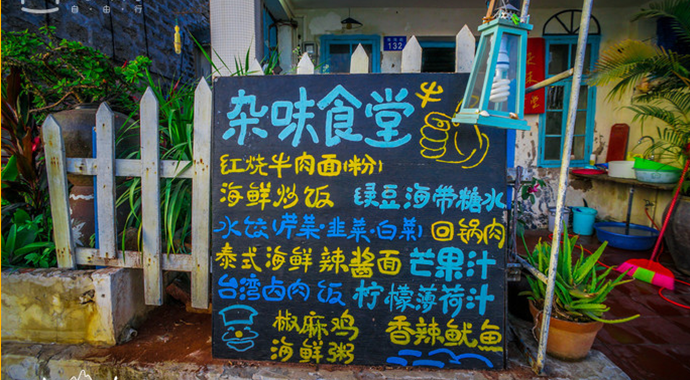 自·由·行
132
杂味食堂
红烧牛肉面(粉)
海鲜炒饭 绿豆海带糖水
水饺(芹菜·韭菜·白菜) 回锅肉
泰式海鲜辣酱面 芒果汁
台湾卤肉饭 柠檬薄荷汁
椒麻鸡 香辣鱿鱼
海鲜粥